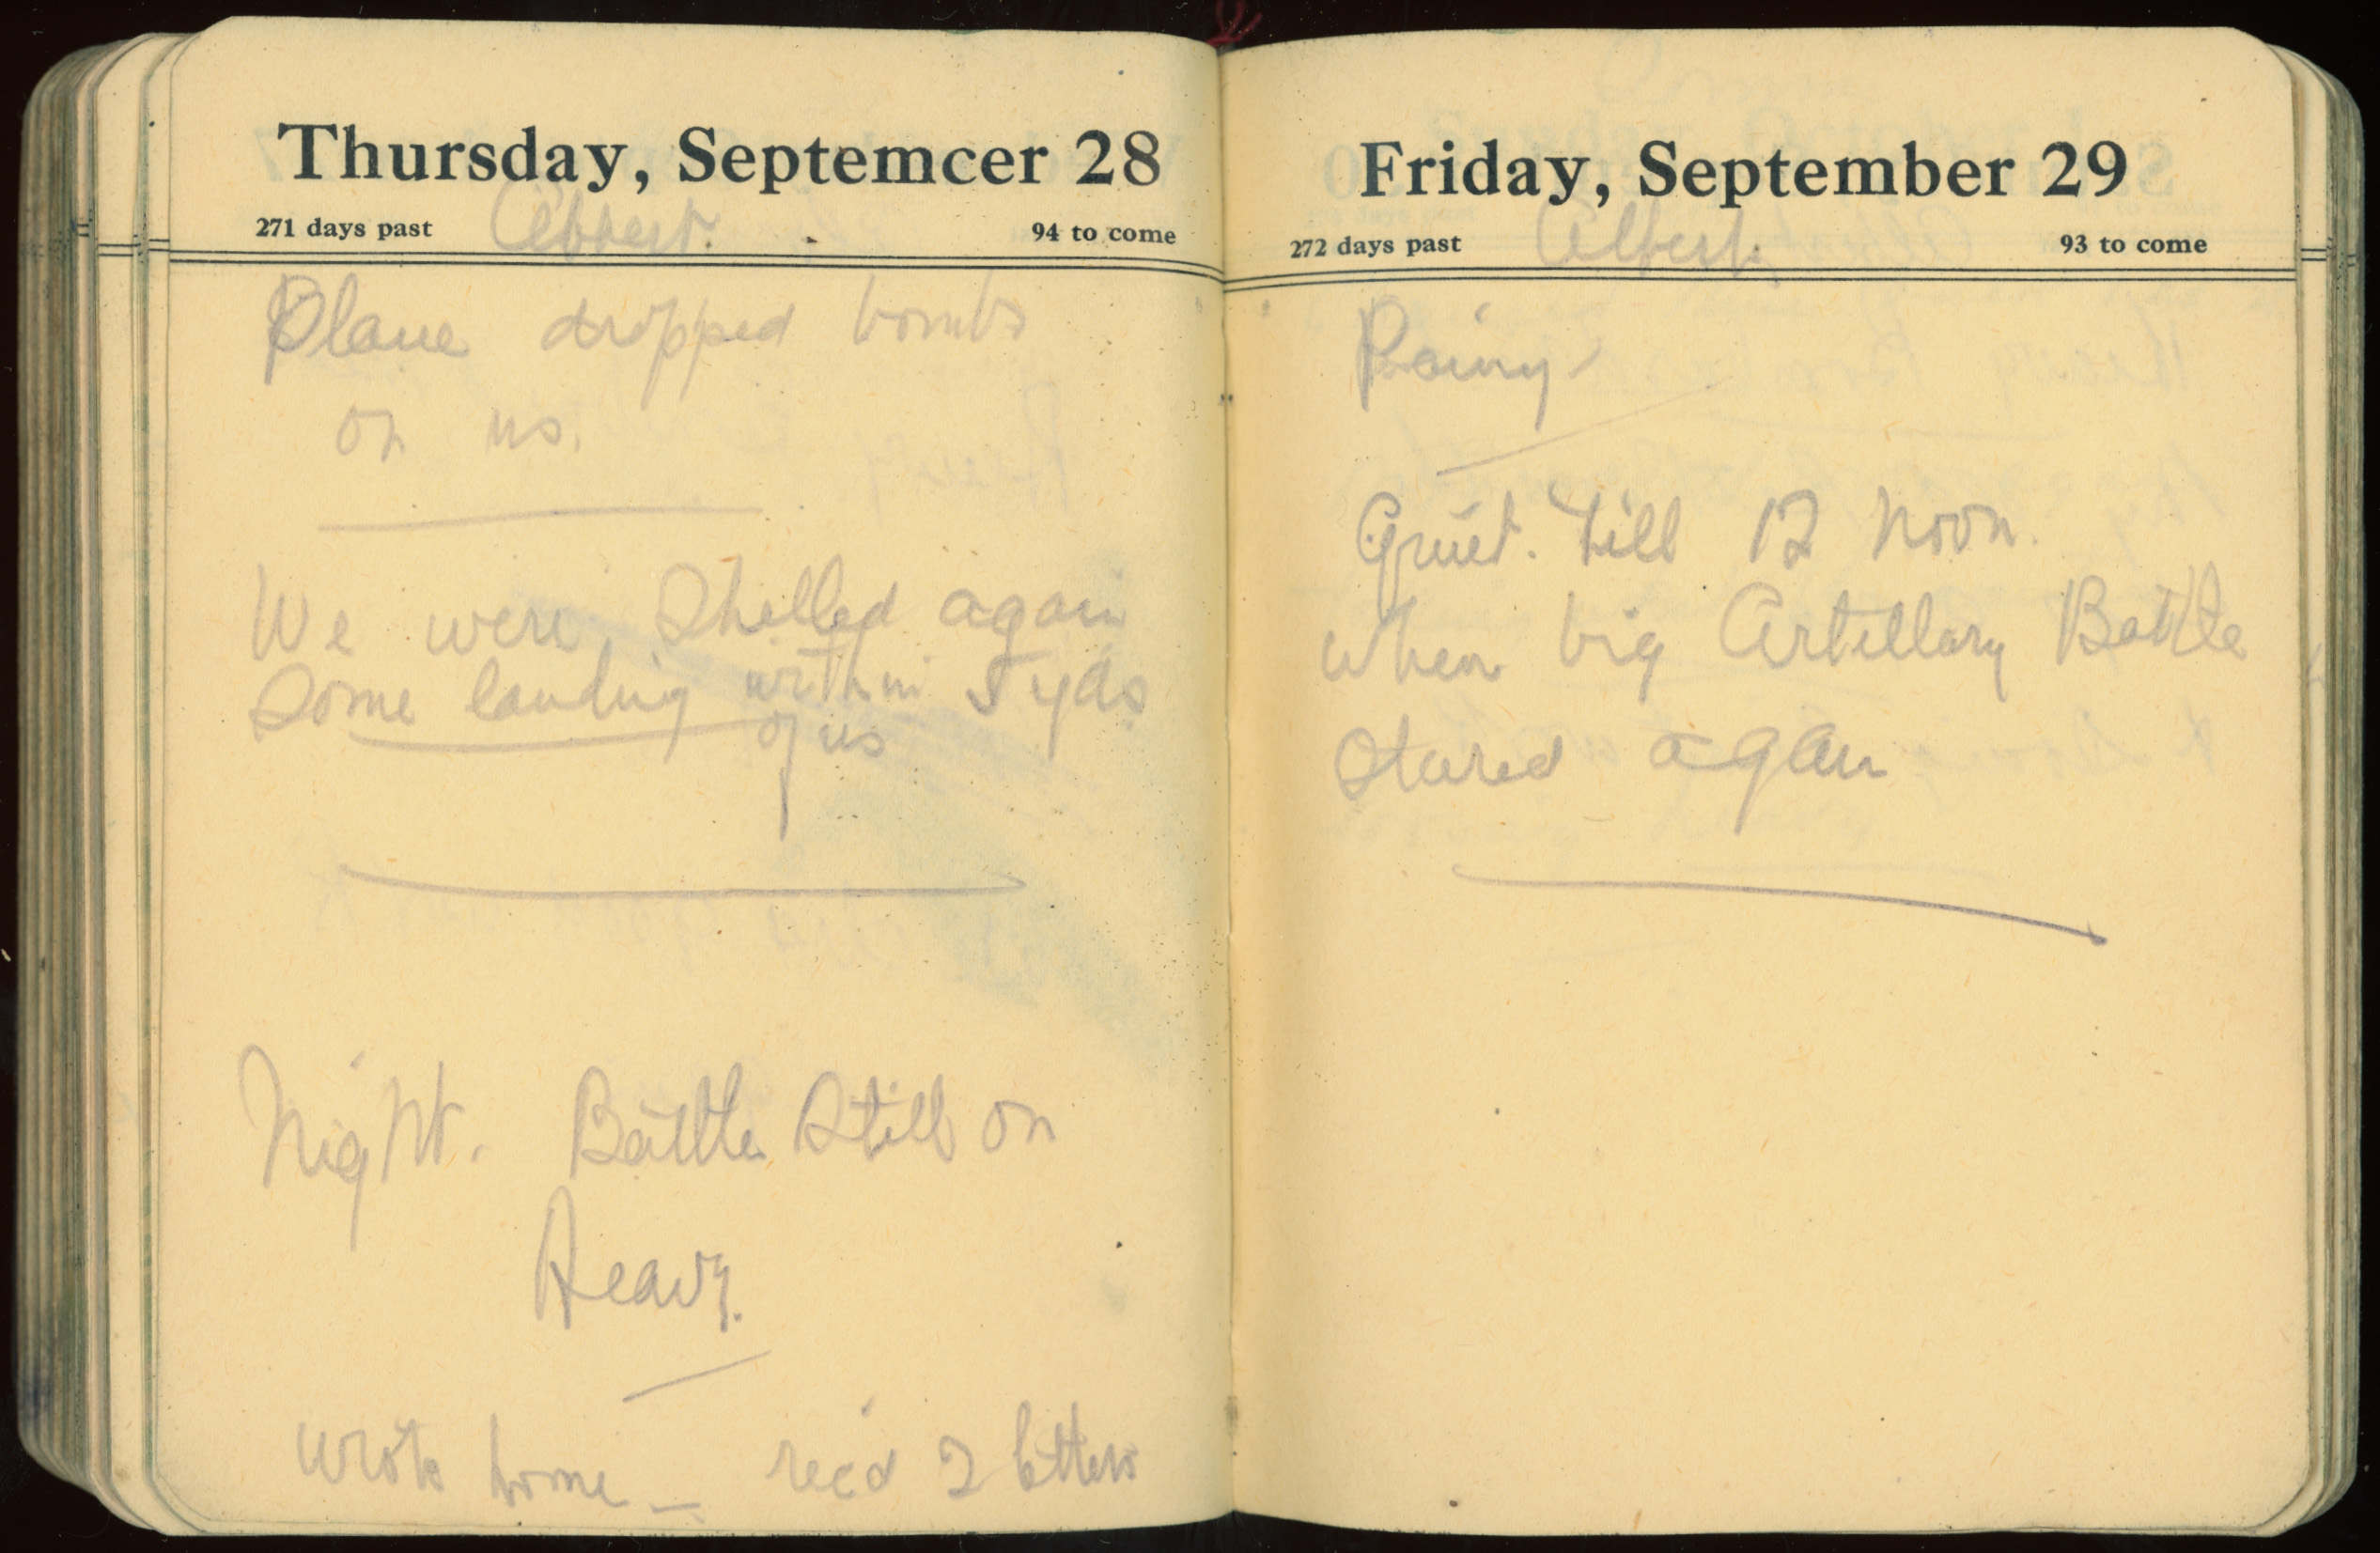 Thursday, Septemcer 28
271 days past Albert. 94 to come
Plane dropped bombs
on us.
We were Shelled again
Some landing within 5 yds
of us
Night. Battle Still on
Heavy.
wrote home – recd 2 letters
Friday, September 29
272 days past Albert. 93 to come
Rainy
Quiet. till 12 noon.
when big Artillary Battle
stared again